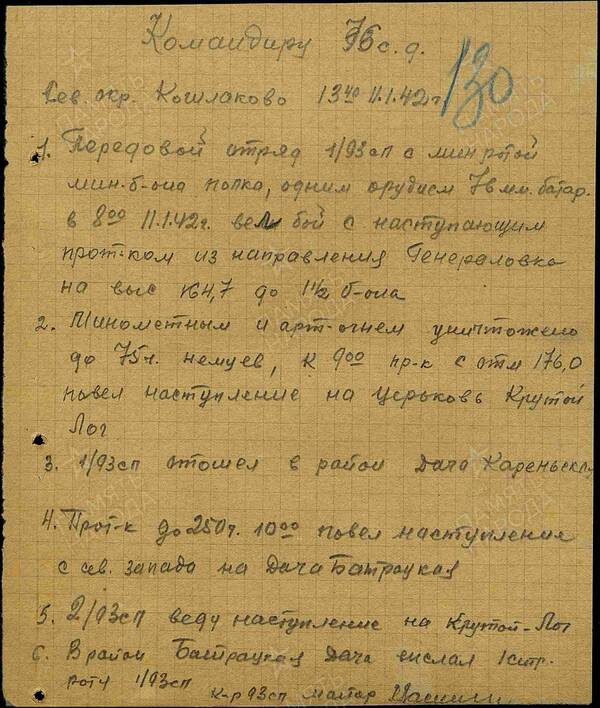 Командиру 76 с.д.
130
Сев. окр. Кошлаково 13⁴⁰ 11.1.42г.
1. Передовой отряд 1/93сп с мин ротой
мин. б-она полка, одним орудием 76 мм. батар.
в 8⁰⁰ 11.1.42г. вел бой с наступающим
прот-ком из направления Генераловка
на выс 164,7 до 1½ б-она
2. Минометным и арт-огнем уничтожено
до 75ч. немцев, к 9⁰⁰ пр-к с отм 176,0
повел наступление на церьковь Крутой
Лог
3. 1/93сп отошел в район Дача
4. Прот-к до 250ч. 10⁰⁰ повел наступления
с сев. запада на Дача Батрацкая
5. 2/93сп веду наступление на Крутой-Лог
6. В район Батрацкая Дача выслал 1стр.
роту 1/93сп
к-р 93сп майор